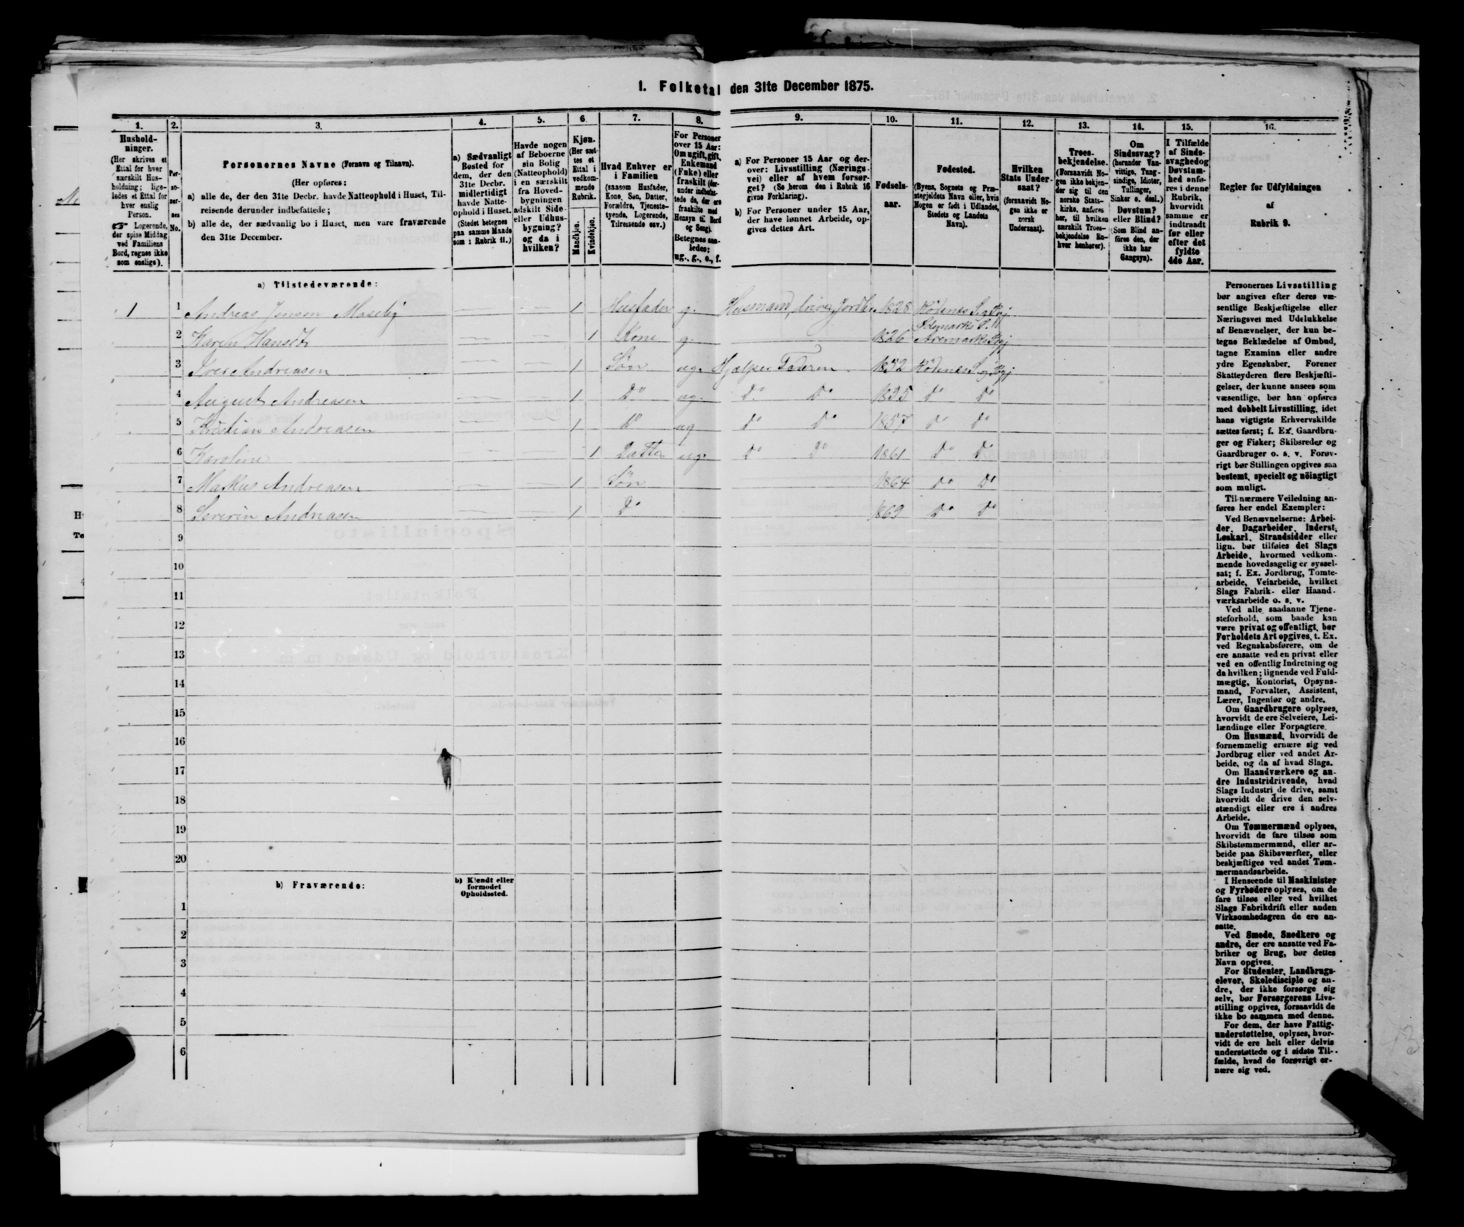 1. Folketal den 31te December 1875.
1.
Hushold-
ninger.
(Her skrives et
Ettal for hver
særskilt Hus-
holdning; lige-
ledes et Ettal for
hver enslig
Person.
☞ Logerende,
der spise Middag
ved Familiens
Bord, regnes ikke
som enslige).
2.
Per-
so-
ner-
nes
No.
3.
Personernes Navne (Fornavn og Tilnavn).
(Her opføres:
a) alle de, der den 31te Decbr. havde Natteophold i Huset, Til-
reisende derunder indbefattede;
b) alle de, der sædvanlig bo i Huset, men vare fraværende
den 31te December.
4.
a) Sædvanligt
Bosted for
dem, der den
31te Decbr.
midlertidigt
havde Natte-
ophold i Huset.
(Stedet betegnes
paa samme Maade
som i Rubrik 11.)
5.
Havde nogen
af Beboerne
sin Bolig
(Natteophold)
i en særskilt
fra Hoved-
bygningen
adskilt Side-
eller Udhus-
bygning?
og da i
hvilken?
6.
Kjøn.
(Her sæt-
tes et
Ettal i
vedkom-
mende
Rubrik.
Mandkjøn.
Kvindekjøn.
7.
Hvad Enhver er
i Familien
(saasom Husfader,
Kone, Søn, Datter,
Forældre, Tjeneste-
tyende, Logerende,
Tilreisende osv.)
8.
For Personer
over 15 Aar:
Om ugift, gift,
Enkemand
(Enke) eller
fraskilt
Betegnes saa-
ledes:
ug., g., e., f.
9.
a) For Personer 15 Aar og der-
over: Livsstilling (Nærings-
vei) eller af hvem forsør-
get? (Se herom den i Rubrik 16
givne Forklaring).
b) For Personer under 15 Aar,
der have lønnet Arbeide, op-
gives dettes Art.
10.
Fødsels-
aar.
11.
Fødested.
(Byens, Sognets og Præ-
stegjældets Navn eller, hvis
Nogen er født i Udlandet,
Stedets og Landets
Navn).
12.
Hvilken
Stats Under-
saat?
(forsaavidt No-
gen ikke er
norsk
Undersaat).
13.
Troes-
bekjendelse.
(Forsaavidt No-
gen ikke bekjen-
der sig til den
norske Stats-
kirke, anføres
her, til hvilken
særskilt Troes-
bekjendelse En-
hver henhører).
14.
Om
Sindssvag?
(herunder Van-
vittige, Tung-
sindige, Idioter,
Tullinger,
Sinker o. desl.)
Døvstum?
eller Blind?
(Som Blind an-
føres den, der
ikke har
Gangsyn).
15.
I Tilfælde
af Sinds-
svaghed og
Døvstum-
hed anfø-
res i denne
Rubrik,
hvorvidt
samme er
indtraadt
før eller
efter det
fyldte
4de Aar.
16.
Regler for Udfyldningen
af
Rubrik 9.
a) Tilstedeværende:
1 1 Andreas Jensen 1 Husfader g. Husmand 1828 Rødenes
2 Karen Hansdr 1 Kone g. 1826
3 Iver Andreasen 1 Søn ug. Hjælper Faderen 1852 Rødenes
4 August Andreasen 1 do ug. do do 1855 do do
5 Kristian Andreasen 1 do ug. do do 1857 do do
6 Karoline 1 Datter ug. do do 1861 do do
7 Markus Andreasen 1 Søn 1864 do do
8 Severin Andreasen 1 do 1869 do do
9
10
11
12
13
14
15
16
17
18
19
20
b) Fraværende:
b) Kjendt eller
formodet
Opholdssted.
1
2
3
4
5
6
Personernes Livsstilling
bør angives efter deres væ-
sentlige Beskjæftigelse eller
Næringsvei med Udelukkelse
af Benævnelser, der kun be-
tegne Beklædelse af Ombud,
tagne Examina eller andre
ydre Egenskaber. Forener
Skatteyderen flere Beskjæfti-
gelser, der kunne ansees som
væsentlige, bør han opføres
med dobbelt Livsstilling, idet
hans vigtigste Erhvervskilde
sættes først; f. Ex. Gaardbru-
ger og Fisker; Skibsreder og
Gaardbruger o. s. v. Forøv-
rigt bør Stillingen opgives saa
bestemt, specielt og nöiagtigt
som muligt.
Til nærmere Veiledning an-
føres her endel Exempler:
Ved Benævnelserne: Arbei-
der, Dagarbeider, Inderst,
Løskarl, Strandsidder eller
lign. bør tilføies det Slags
Arbeide, hvormed vedkom-
mende hovedsagelig er syssel-
sat; f. Ex. Jordbrug, Tomte-
arbeide, Veiarbeide, hvilket
Slags Fabrik- eller Haand-
værksarbeide o. s. v.
Ved alle saadanne Tjene-
steforhold, som baade kan
være privat og offentligt, bør
Forholdets Art opgives, t. Ex.
ved Regnskabsførere, om de
ere ansatte ved en privat eller
ved en offentlig Indretning og
da hvilken; lignende ved Fuld-
mægtig, Kontorist, Opsyns-
mand, Forvalter, Assistent,
Lærer, Ingeniør og andre.
Om Gaardbrugere oplyses,
hvorvidt de ere Selveiere, Lei-
lændinge eller Forpagtere.
Om Husmænd, hvorvidt de
fornemmelig ernære sig ved
Jordbrug eller ved andet Ar-
beide, og da af hvad Slags.
Om Haandværkere og an-
dre Industridrivende, hvad
Slags Industri de drive, samt
hvorvidt de drive den selv-
stændigt eller ere i andres
Arbeide.
Om Tømmermænd oplyses,
hvorvidt de fare tilsøs som
Skibstømmermænd, eller ar-
beide paa Skibsværfter, eller
beskjæftiges ved andet Tøm-
mermandsarbeide.
I Henseende til Maskinister
og Fyrbødere oplyses, om de
fare tilsøs eller ved hvilket
Slags Fabrikdrift eller anden
Virksomhedsgren de ere an-
satte.
Ved Smede, Snedkere og
andre, der ere ansatte ved Fa-
briker og Brug, bør dettes
Navn opgives.
For Studenter, Landbrugs-
elever, Skoledisciple og an-
dre, der ikke forsørge sig
selv, bør Forsørgerens Livs-
stilling opgives, forsaavidt de
ikke bo sammen med denne.
For dem, der have Fattig-
understøttelse, oplyses, hvor-
vidt de ere helt eller delvis
understøttede og i sidste Til-
fælde, hvad de forøvrigt er-
nære sig ved.